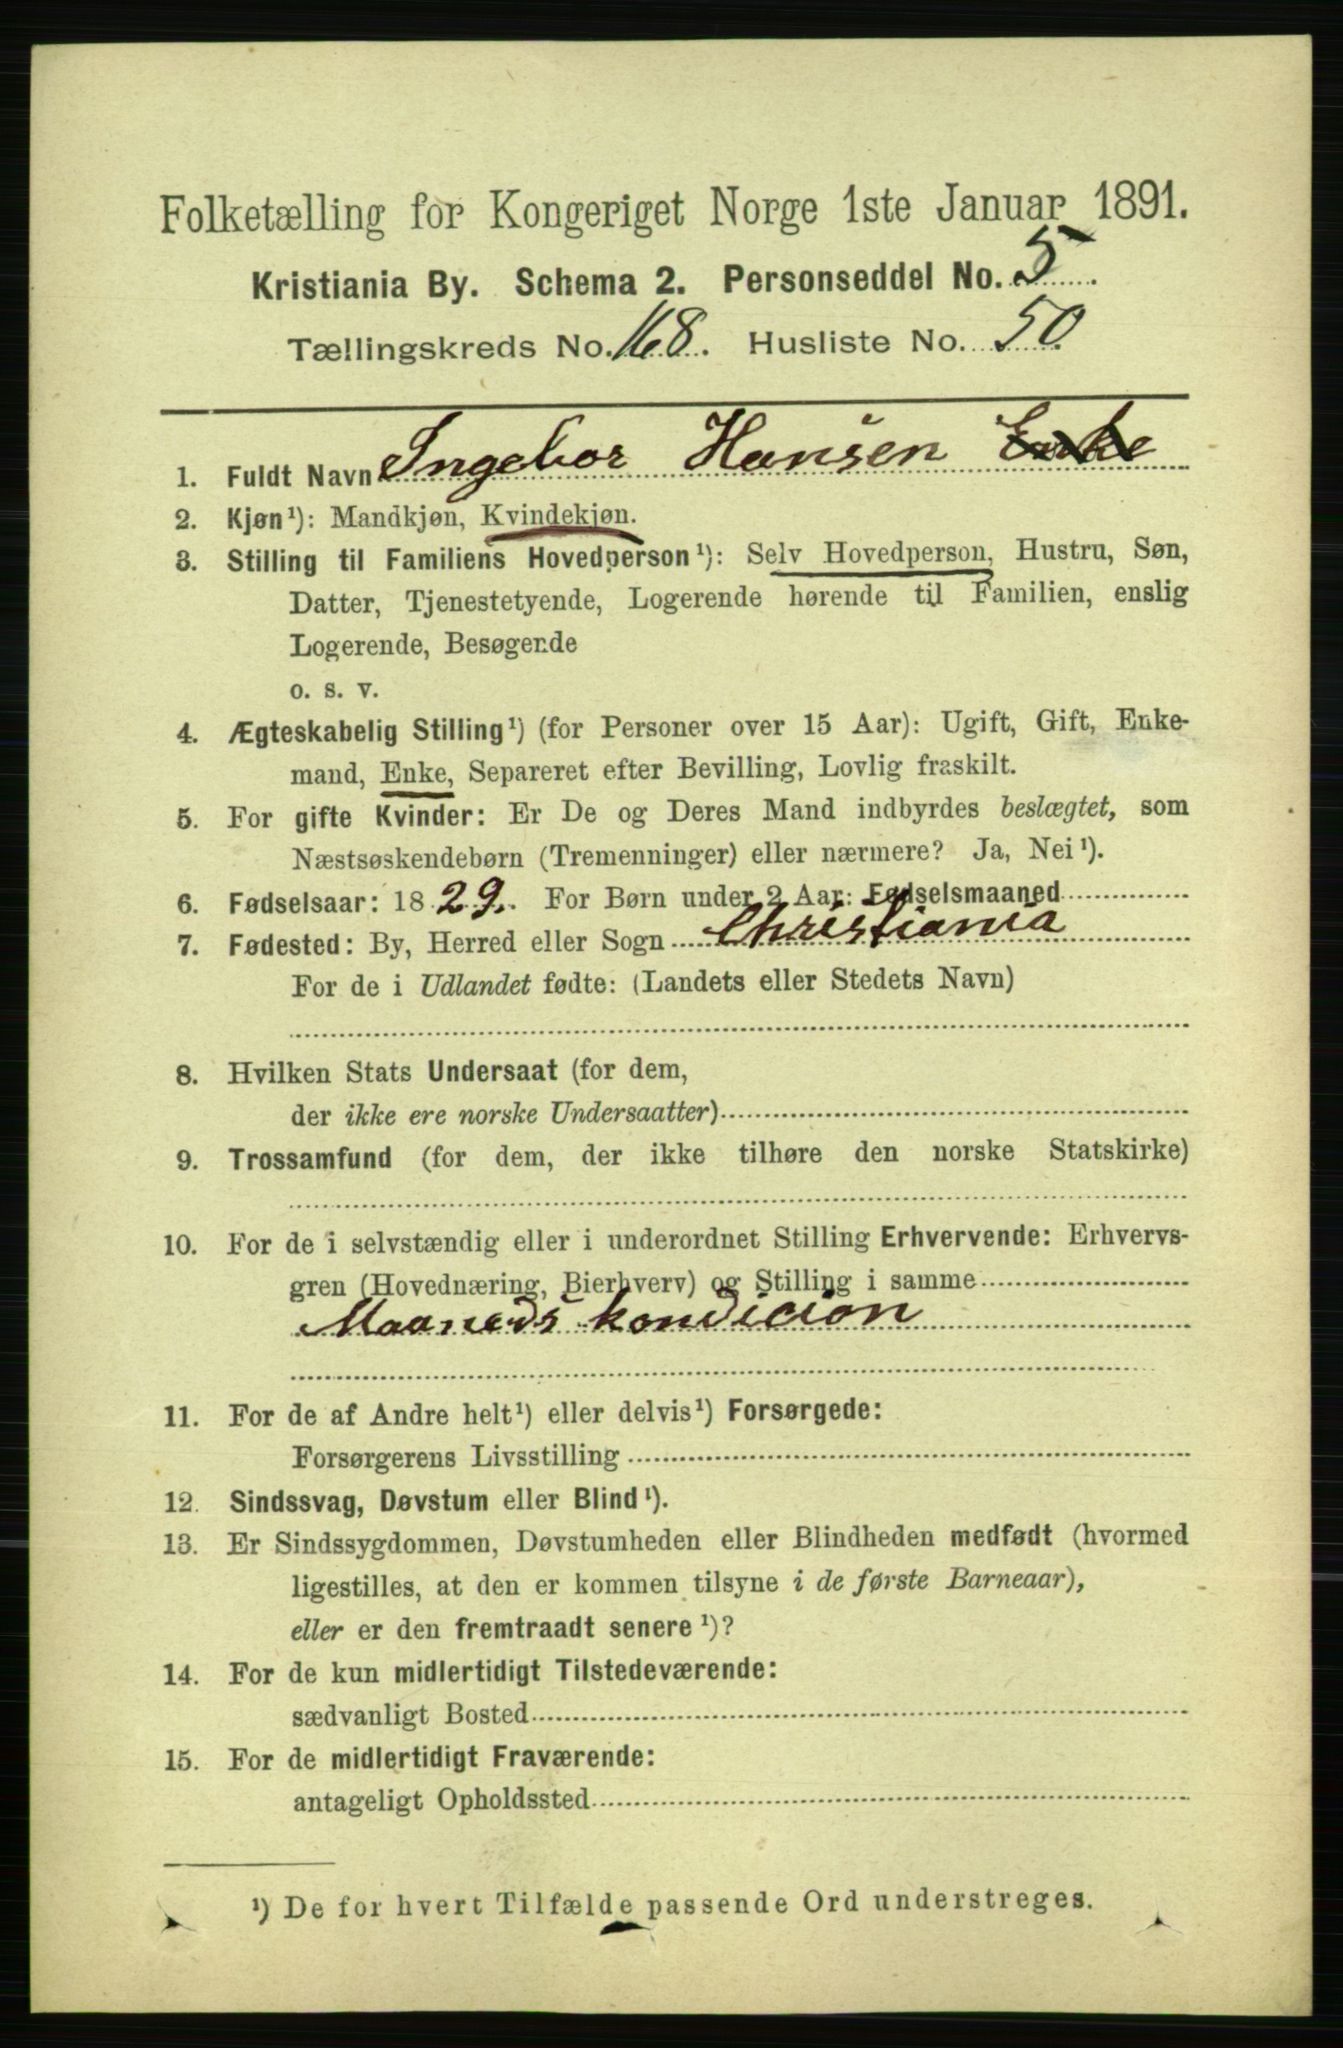 Folketælling for Kongeriget Norge 1ste Januar 1891.
Kristiania By. Schema 2. Personseddel No. 5.
Tællingskreds No. 168. Husliste No. 50
1. Fuldt Navn Ingebor Hansen Enke
2. Kjøn¹): Mandkjøn, Kvindekjøn.
3. Stilling til Familiens Hovedperson¹): Selv Hovedperson, Hustru, Søn,
Datter, Tjenestetyende, Logerende hørende til Familien, enslig
Logerende, Besøgende
o. s. v.
4. Ægteskabelig Stilling¹) (for Personer over 15 Aar): Ugift, Gift, Enke-
mand, Enke, Separeret efter Bevilling, Lovlig fraskilt.
5. For gifte Kvinder: Er De og Deres Mand indbyrdes beslægtet, som
Næstsøskendebørn (Tremenninger) eller nærmere? Ja, Nei¹).
6. Fødselsaar: 1829. For Børn under 2 Aar: Fødselsmaaned
7. Fødested: By, Herred eller Sogn Christiania
For de i Udlandet fødte: (Landets eller Stedets Navn)
8. Hvilken Stats Undersaat (for dem,
der ikke ere norske Undersaatter)
9. Trossamfund (for dem, der ikke tilhøre den norske Statskirke)
10. For de i selvstændig eller i underordnet Stilling Erhvervende: Erhvervs-
gren (Hovednæring, Bierhverv) og Stilling i samme
Maaneds kondicion
11. For de af Andre helt¹) eller delvis¹) Forsørgede:
Forsørgerens Livsstilling
12. Sindssvag, Døvstum eller Blind¹).
13. Er Sindssygdommen, Døvstumheden eller Blindheden medfødt (hvormed
ligestilles, at den er kommen tilsyne i de første Barneaar),
eller er den fremtraadt senere¹)?
14. For de kun midlertidigt Tilstedeværende:
sædvanligt Bosted
15. For de midlertidigt Fraværende:
antageligt Opholdssted
¹) De for hvert Tilfælde passende Ord understreges.